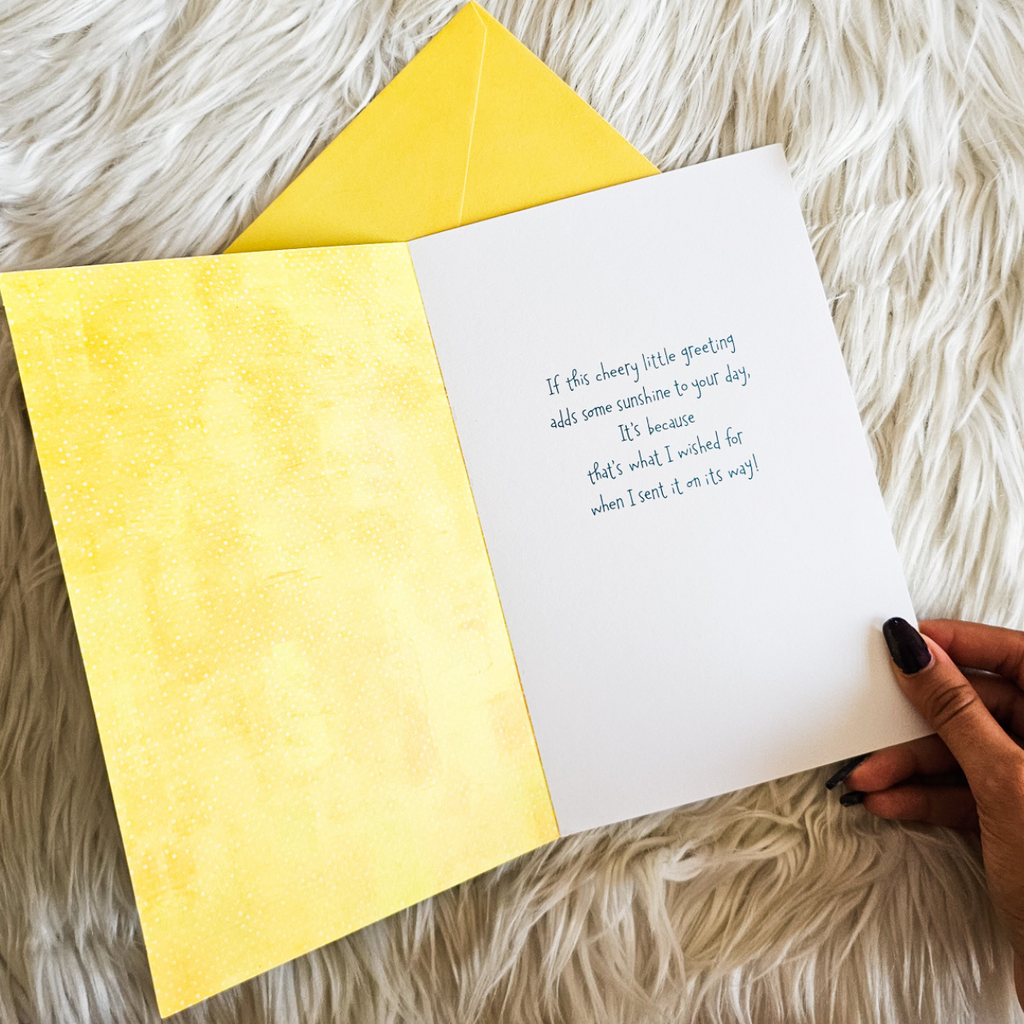 If this cheery little greeting
adds some sunshine to your day,
It's because
that's what I wished for
when I sent it on its way!